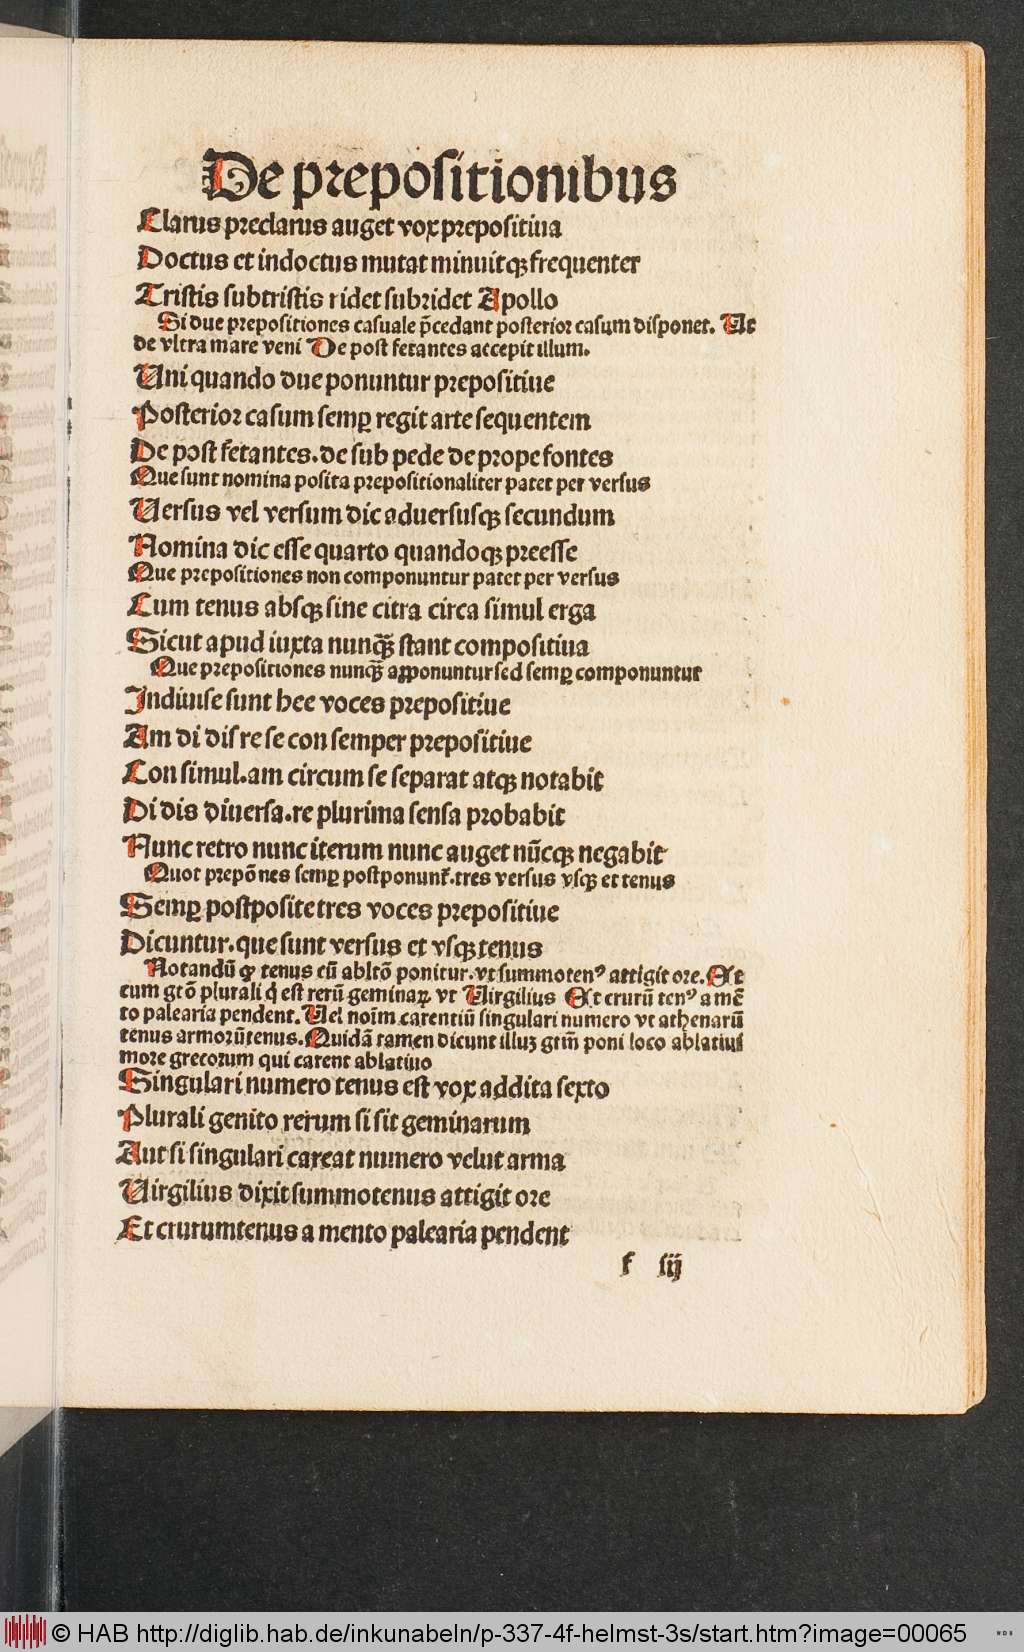 De prepositionibus
Clarus preclarus auget vox prepositiua
Doctus et indoctus mutat minuitqꝫ frequenter
Tristis subtristis ridet subridet Apollo
Si due prepositiones casuale p̄cedant posterior casum disponet. Ut
de vltra mare veni De post fetantes accepit illum.
Uni quando due ponuntur prepositiue
Posterior casum semꝑ regit arte sequentem
De post fetantes. de sub pede de prope fontes
Que sunt nomina posita prepositionaliter patet per versus
Uersus vel versum dic aduersusqꝫ secundum
Nomina dic esse quarto quandoqꝫ preesse
Que prepositiones non componuntur patet per versus
Cum tenus absqꝫ sine citra circa simul erga
Sicut apud iuxta nunqꝫ̄ stant compositiua
Que prepositiones nunqꝫ̄ apponuntur sed semꝑ componuntur
Indiuise sunt hee voces prepositiue
Am di dis re se con semper prepositiue
Con simul. am circum se separat atqꝫ notabit
Di dis diuersa. re plurima sensa probabit
Nunc retro nunc iterum nunc auget nūcqꝫ negabit
Quot prepōnes semꝑ postponunt᷑. tres versus vsqꝫ et tenus
Semꝑ postposite tres voces prepositiue
Dicuntur. que sunt versus et vsqꝫ tenus
Notandū ꝙ tenus cū abltō ponitur. vt summotenꝰ attigit ore. Et
cum gtō plurali q̇ est rerū geminaꝝ vt Uirgilius Et crurū tenꝰ a mē
to palearia pendent. Uel noīm carentiū singulari numero vt athenarū
tenus armorū tenus. Quidā tamen dicunt illuꝫ gtm̄ poni loco ablatiui
more grecorum qui carent ablatiuo
Singulari numero tenus est vox addita sexto
Plurali genito rerum si sit geminarum
Aut si singulari careat numero velut arma
Uirgilius dixit summotenus attigit ore
Et crurumtenus a mento palearia pendent
f iij
© HAB http://diglib.hab.de/inkunabeln/p-337-4f-helmst-3s/start.htm?image=00065